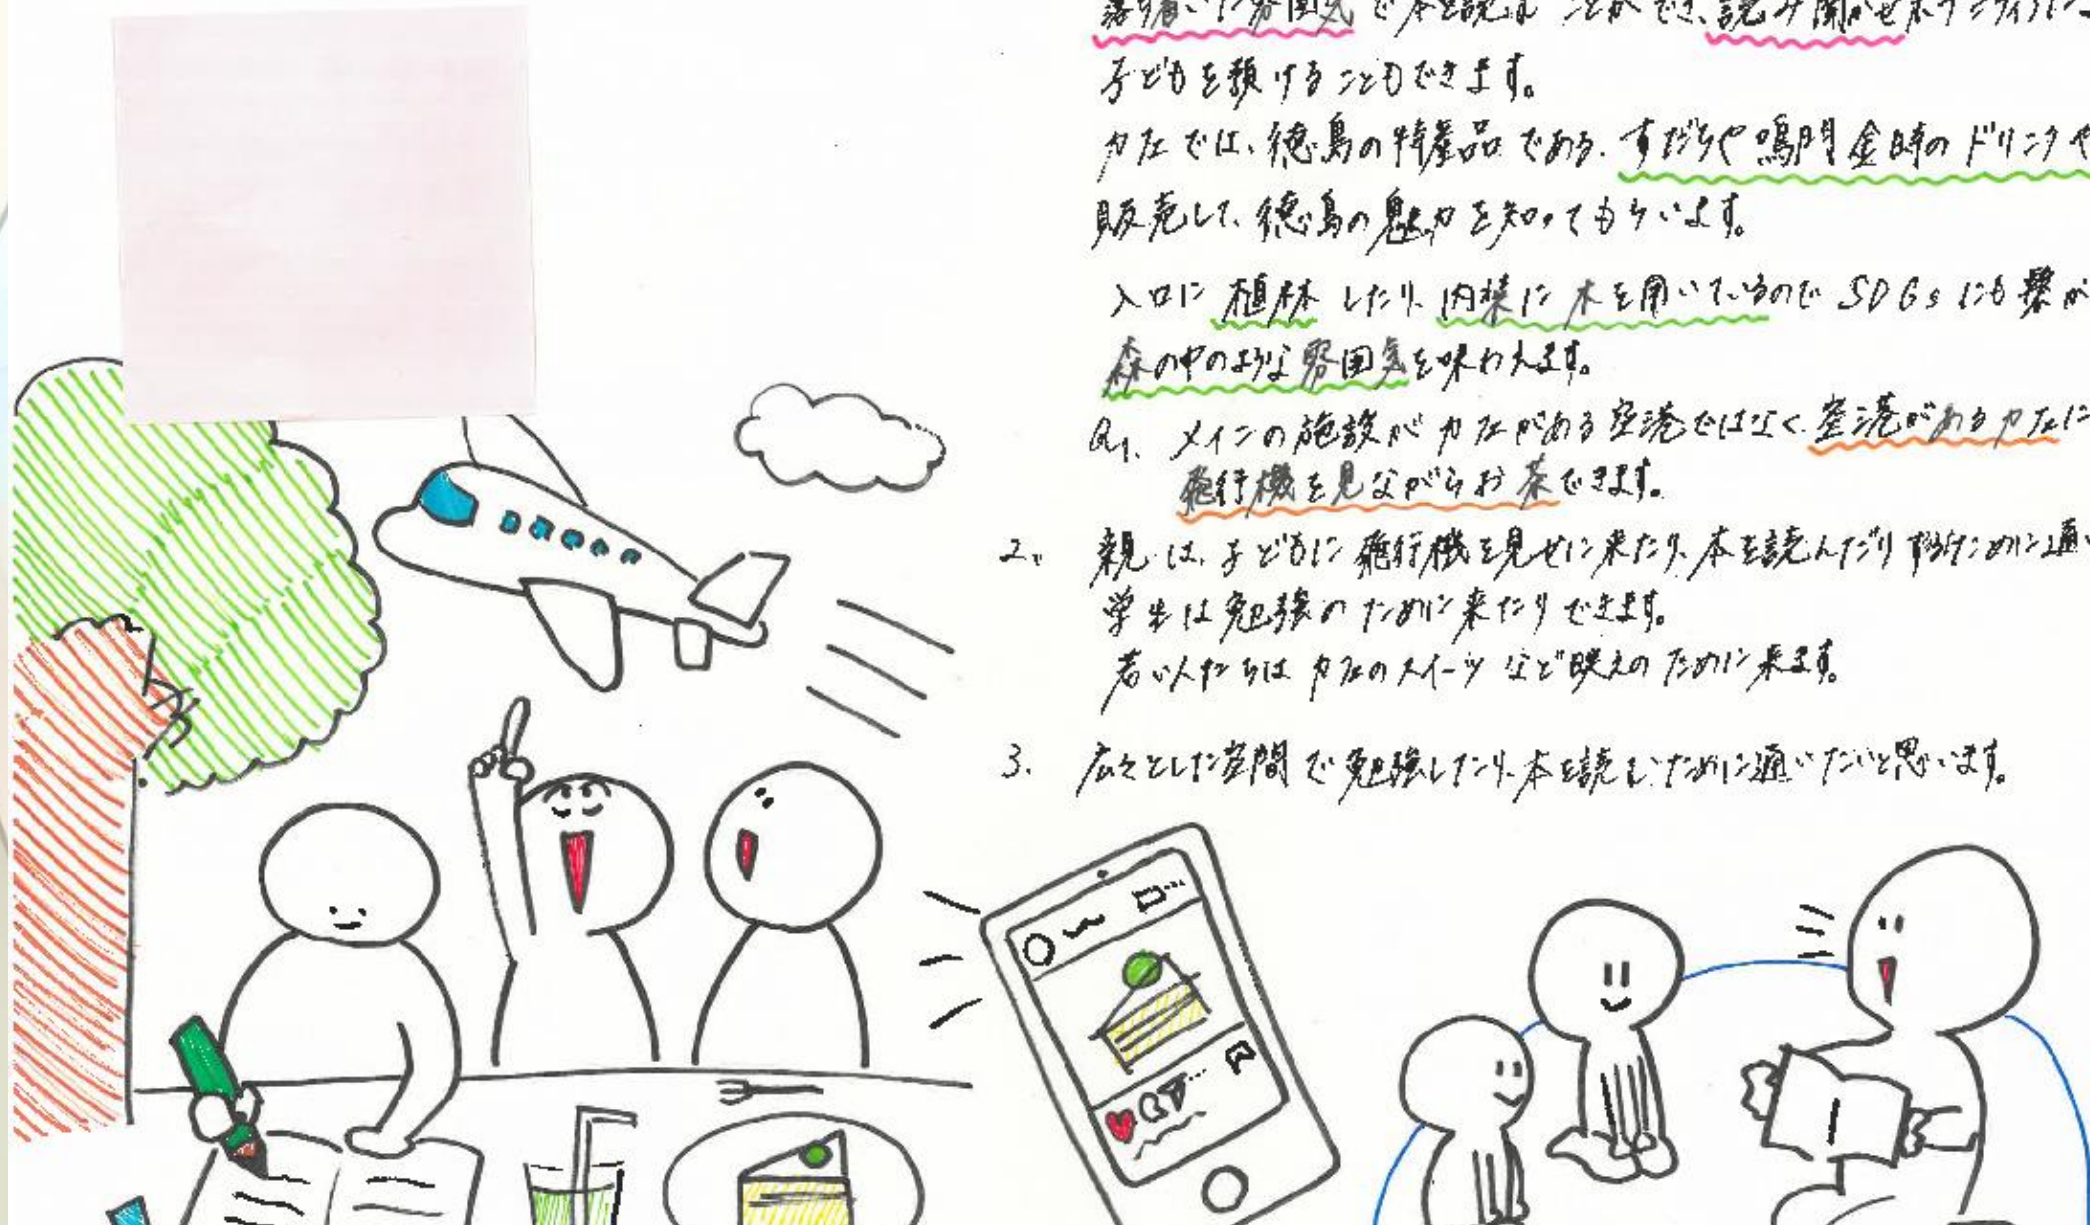 落ち着いた雰囲気で本を読むことができ、読み聞かせボランティアに
子どもを預けることもできます。
カフェでは、徳島の特産品である、すだちや鳴門金時のドリンクや
販売して、徳島の魅力を知ってもらいます。
入口に植林したり、内装に木を用いているのでSDGsにも繋が
森の中のような雰囲気を味わえます。
Q1. メインの施設がカフェがある空港ではなく、空港があるカフェに
飛行機を見ながらお茶できます。
2. 親は、子どもに飛行機を見せに来たり、本を読んだりするために通い
学生は勉強のために来たりできます。
若い人たちはカフェのスイーツなど映えのために来ます。
3. 広々とした空間で勉強したり、本を読むために通いたいと思います。